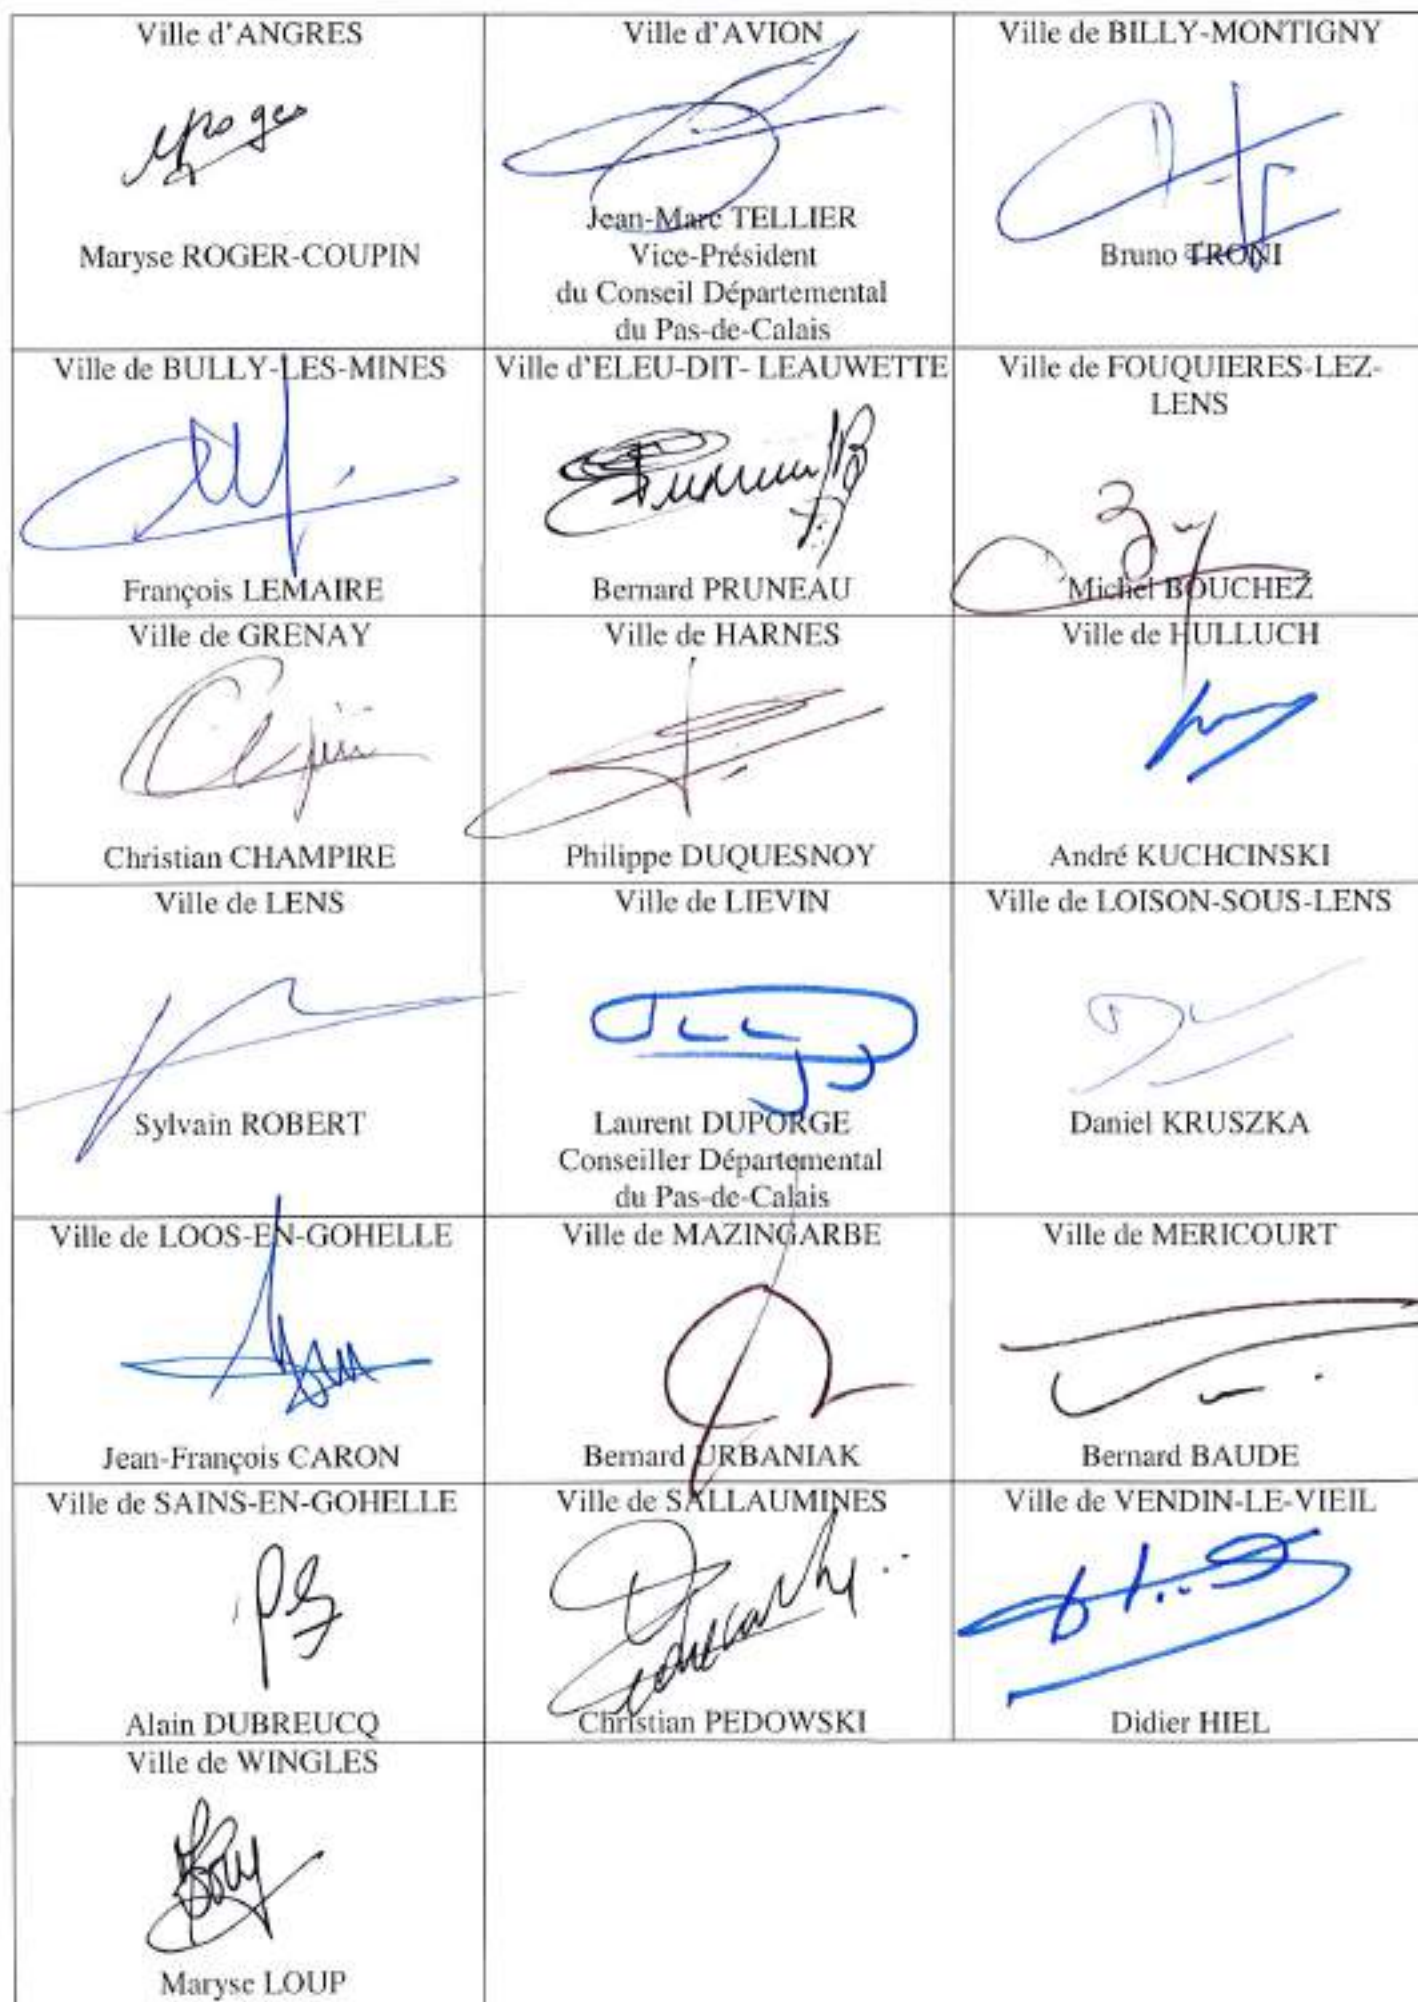 Ville d'ANGRES
Maryse ROGER-COUPIN
Ville d'AVION
Jean-Marc TELLIER
Vice-Président
du Conseil Départemental
du Pas-de-Calais
Ville de BILLY-MONTIGNY
Bruno TRONI
Ville de BULLY-LES-MINES
François LEMAIRE
Ville d'ELEU-DIT- LEAUWETTE
Bernard PRUNEAU
Ville de FOUQUIERES-LEZ-
LENS
Michel BOUCHEZ
Ville de GRENAY
Christian CHAMPIRE
Ville de HARNES
Philippe DUQUESNOY
Ville de HULLUCH
André KUCHCINSKI
Ville de LENS
Sylvain ROBERT
Ville de LIEVIN
Laurent DUPORGE
Conseiller Départemental
du Pas-de-Calais
Ville de LOISON-SOUS-LENS
Daniel KRUSZKA
Ville de LOOS-EN-GOHELLE
Jean-François CARON
Ville de MAZINGARBE
Bernard URBANIAK
Ville de MERICOURT
Bernard BAUDE
Ville de SAINS-EN-GOHELLE
Alain DUBREUCQ
Ville de SALLAUMINES
Christian PEDOWSKI
Ville de VENDIN-LE-VIEIL
Didier HIEL
Ville de WINGLES
Maryse LOUP